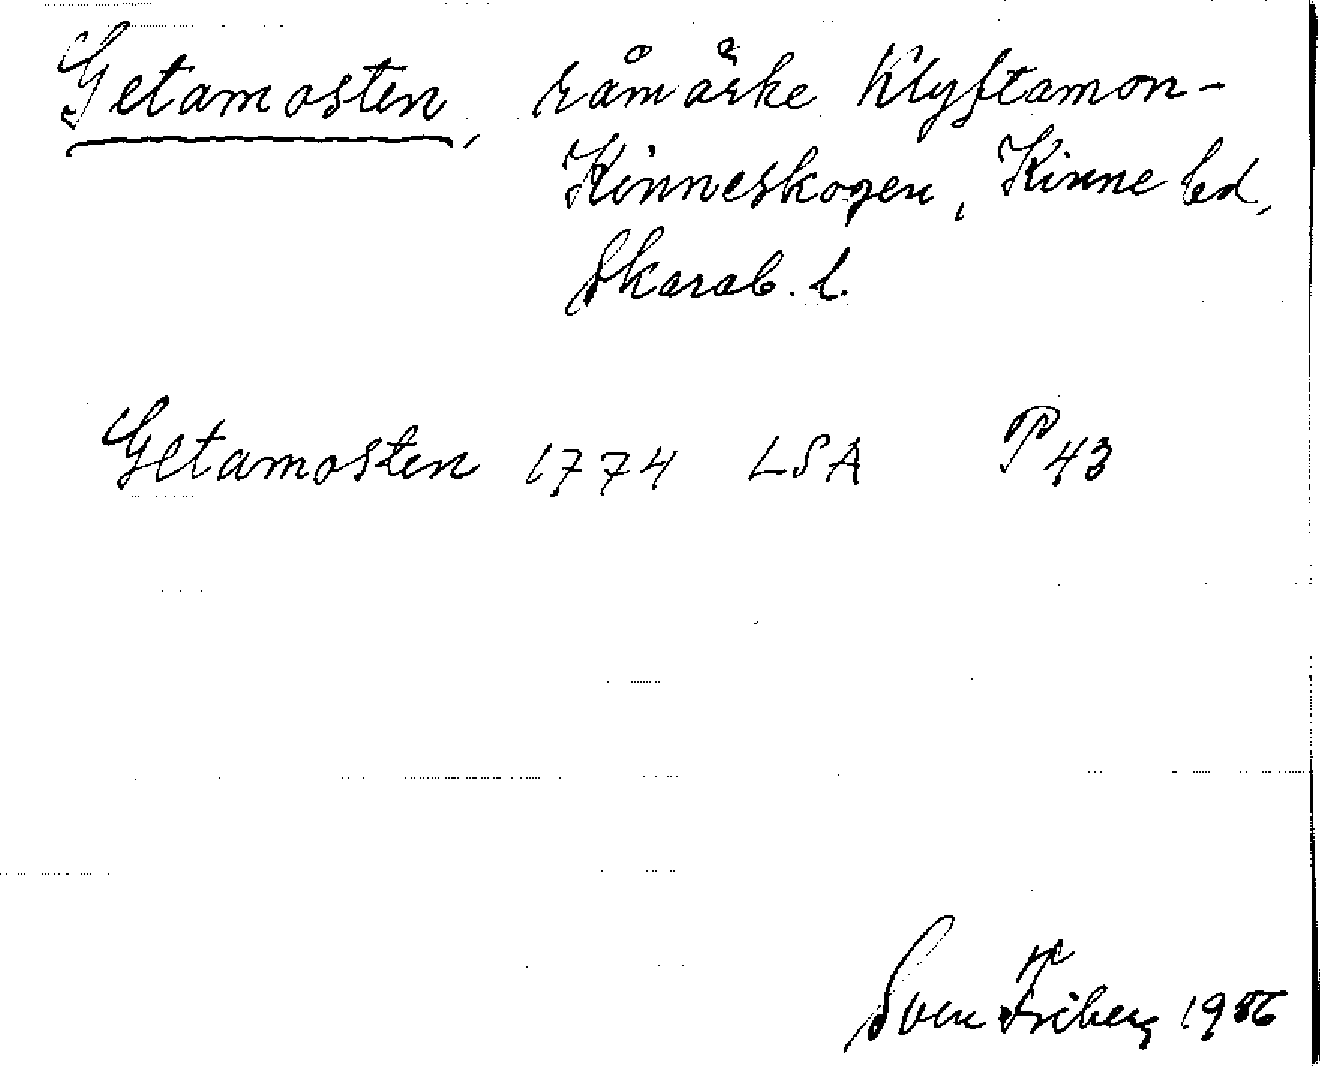 Getamosten, råmärke Klyftamon-
Kinneskogen, Kinne hd,
Skarab. l.
Getamosten 1774 LSA P43
Sven Friberg 1956